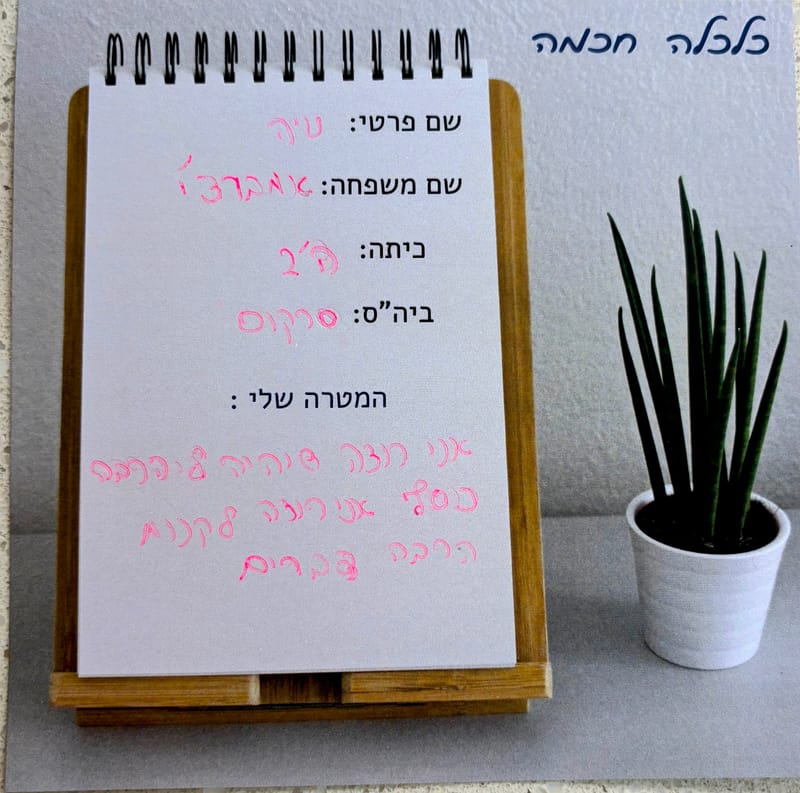 כלכלה חכמה
שם פרטי: טיה
שם משפחה: אמברצ'י
כיתה: ה'ב
ביה"ס: סרקום
המטרה שלי :
אני רוצה שיהיה לי הרבה
כסף אני רוצה לקנות
הרבה דברים